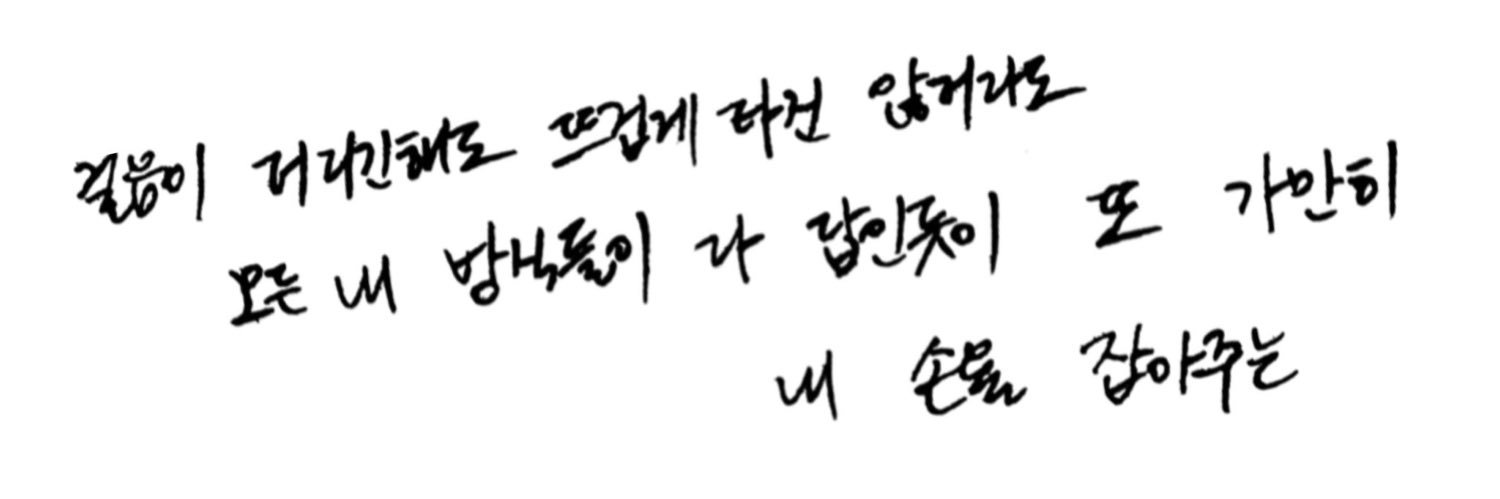 걸음이 더디긴해도 뜨겁게 타건 않거라도
모든 내 방식들이 다 답인듯이 또 가만히
내 손을 잡아주는